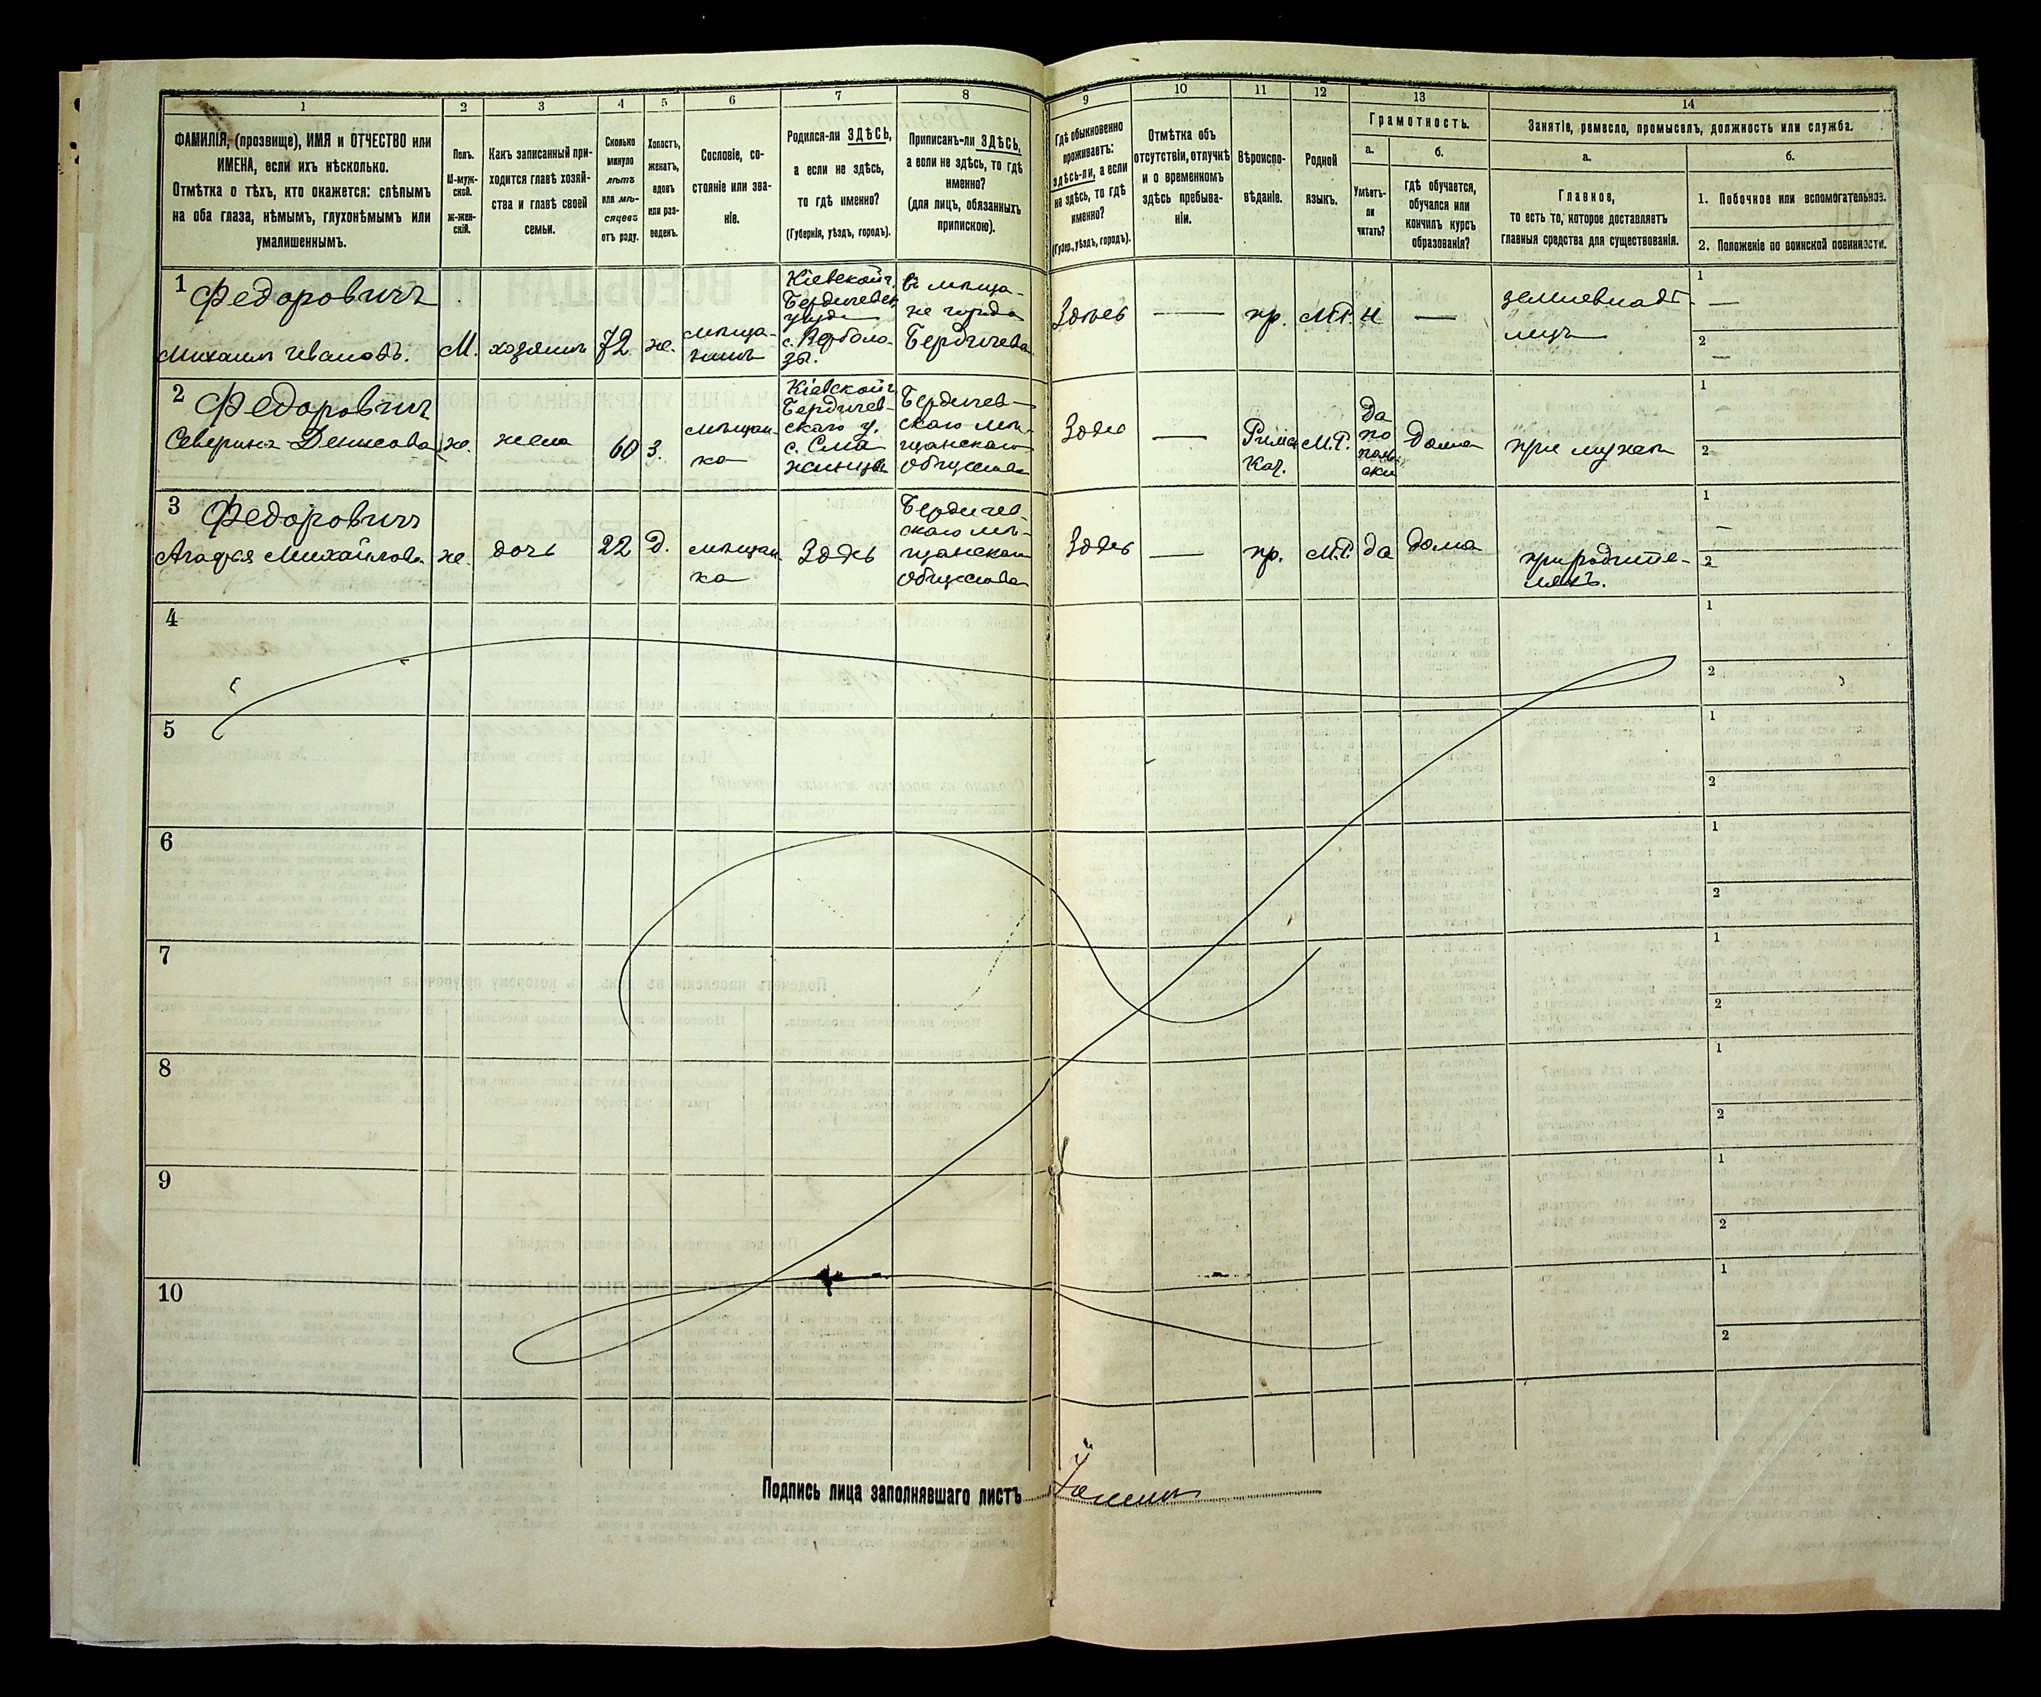 1
2
3
4
5
6
7
8
9
10
11
12
13
14
ФАМИЛІЯ, (прозвище), ИМЯ и ОТЧЕСТВО или
ИМЕНА, если ихъ нѣсколько.
Отмѣтка о тѣхъ, кто окажется: слѣпымъ
на оба глаза, нѣмымъ, глухонѣмымъ или
умалишеннымъ.
Полъ.
М-муж-
ской.
Ж-жен-
скій.
Какъ записанный при-
ходится главѣ хозяй-
ства и главѣ своей
семьи.
Сколько
минуло
лѣтъ
или мѣ-
сяцевъ
отъ роду.
Холостъ,
женатъ,
вдовъ
или раз-
веденъ.
Сословіе, со-
стояніе или зва-
ніе.
Родился-ли ЗДѢСЬ,
а если не здѣсь,
то гдѣ именно?
(Губернія, уѣздъ, городъ).
Приписанъ-ли ЗДѢСЬ,
а если не здѣсь, то гдѣ
именно?
(для лицъ, обязанныхъ
припискою).
Гдѣ обыкновенно
проживаетъ:
здѣсь-ли, а если
не здѣсь, то гдѣ
именно?
(Губер., уѣздъ, городъ).
Отмѣтка объ
отсутствіи, отлучкѣ
и о временномъ
здѣсь пребыва-
ніи.
Вѣроиспо-
вѣданіе.
Родной
языкъ.
Грамотность.
а.
Умѣетъ-
ли
читать?
б.
Гдѣ обучается,
обучался или
кончилъ курсъ
образованія?
Занятіе, ремесло, промыселъ, должность или служба.
а.
Главное,
то есть то, которое доставляетъ
главныя средства для существованія.
б.
1. Побочное или вспомогательное.
2. Положеніе по воинской повинности.
1 Федоровичъ
Михаилъ Ивановъ.
М.
хозяинъ
72
же.
мѣща-
нинъ
Кіевской г.
Бердичевск
уѣзда
с. Верболо-
зы.
въ мѣща-
не города
Бердичева
Здѣсь
—
пр.
М.Р.
н
—
землевладѣ-
лецъ
1
—
2
—
2 Федоровичъ
Северина Денисова
же.
жена
60
З.
мѣщан-
ка
Кіевской г
Бердичев-
скаго у.
с. Сма
жинцы
Бердичев-
скаго мѣ-
щанскаго
общества
Здѣсь
—
Римск
Кат.
М.Р.
Да
по
поль-
ски
Дома
при мужѣ
1
2
3 Федоровичъ
Агафія Михайлова
же.
дочь
22
Д.
мѣщан
ка
Здѣсь
Бердичев-
скаго мѣ-
щанскаго
общества
Здѣсь
—
пр.
М.Р.
да
дома
при родите-
ляхъ.
1
2
4
1
2
5
1
2
6
1
2
7
1
2
8
1
2
9
1
2
10
1
2
Подпись лица заполнявшаго листъ